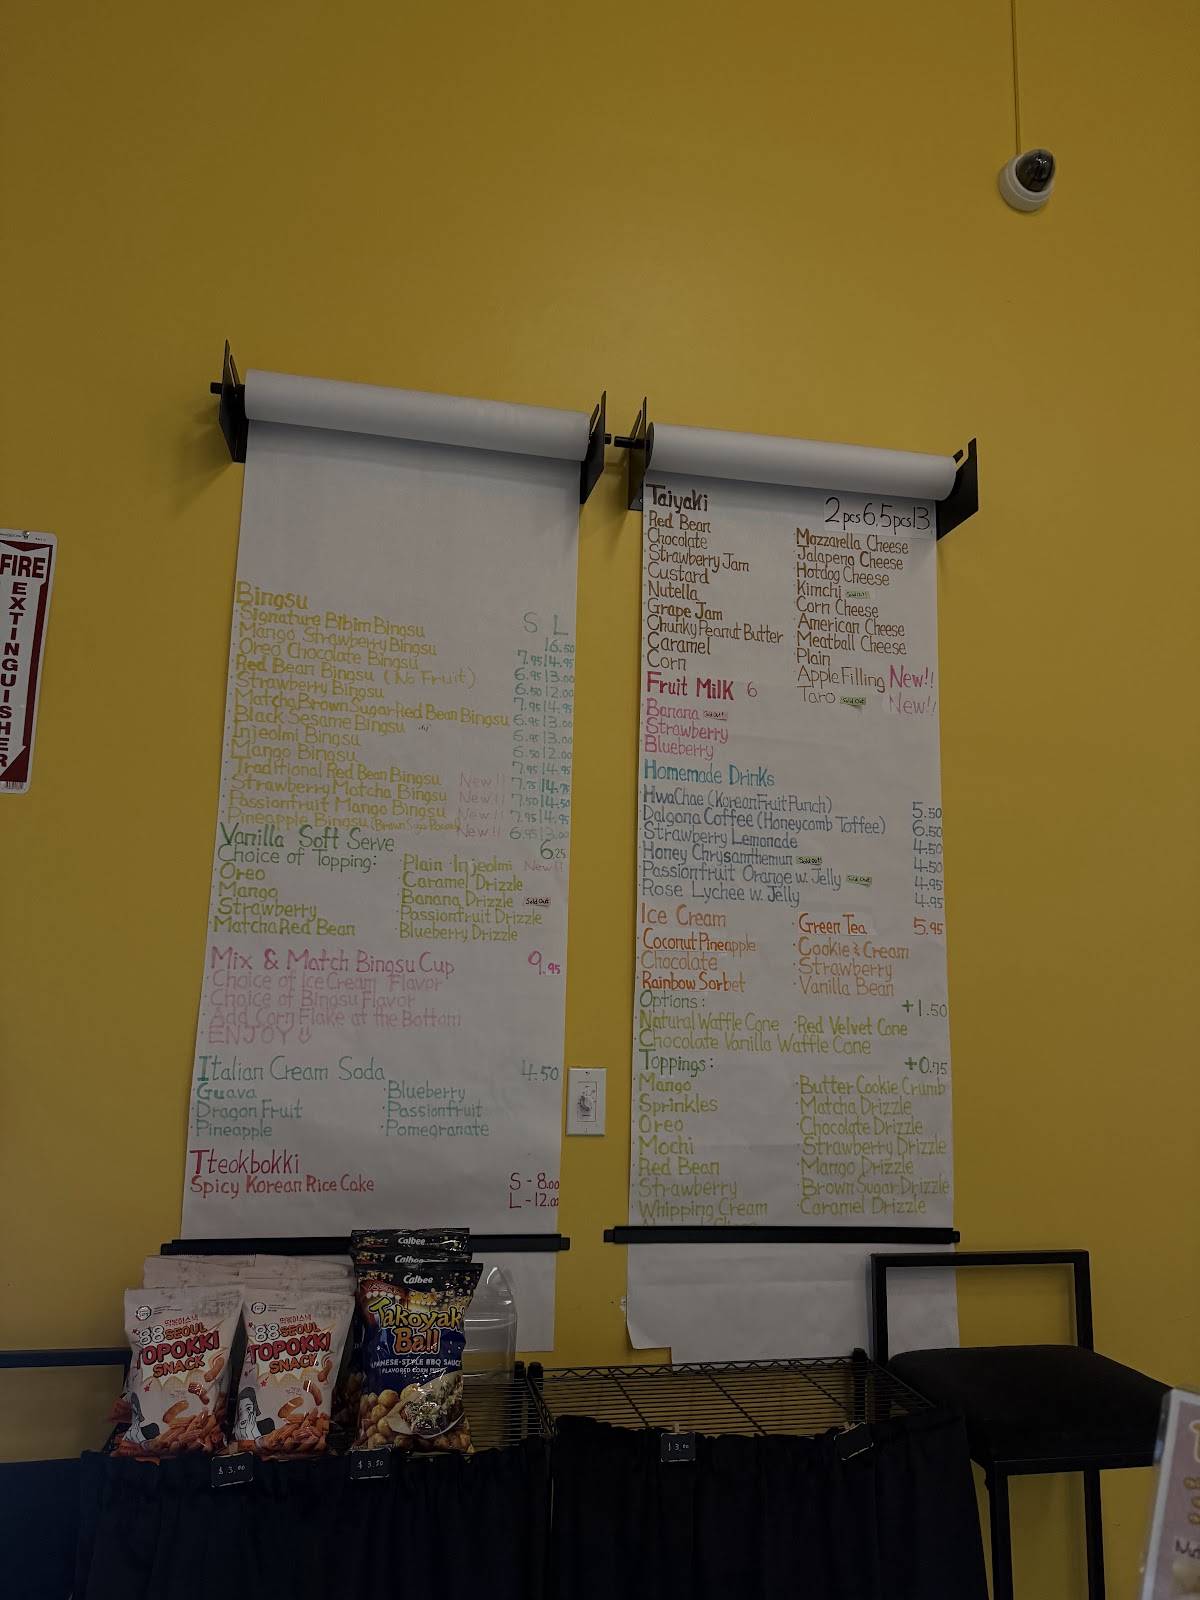 FIRE
EXTINGUISHER
Bingsu
S L
·Signature Bibim Bingsu 16.50
·Mango Strawberry Bingsu 7.95|14.95
·Oreo Chocolate Bingsu 6.95|13.00
·Red Bean Bingsu (No Fruit) 6.50|12.00
·Strawberry Bingsu 7.95|14.95
·Matcha Brown Sugar Red Bean Bingsu 6.95|13.00
·Black Sesame Bingsu 6.95|13.00
·Injeolmi Bingsu 6.50|12.00
·Mango Bingsu 7.95|14.95
·Traditional Red Bean Bingsu New!! 7.75|14.75
·Strawberry Matcha Bingsu New!! 7.50|14.50
·Passionfruit Mango Bingsu New!! 7.95|14.95
·Pineapple Bingsu New!! 6.95|13.00
Vanilla Soft Serve 6.25
Choice of Topping: ·Plain ·Injeolmi New!!
·Oreo ·Caramel Drizzle
·Mango ·Banana Drizzle Sold Out
·Strawberry ·Passionfruit Drizzle
·Matcha Red Bean ·Blueberry Drizzle
Mix & Match Bingsu Cup 9.95
·Choice of Ice Cream Flavor
·Choice of Bingsu Flavor
·Add Corn Flake at the Bottom
·ENJOY
Italian Cream Soda 4.50
·Guava ·Blueberry
·Dragon Fruit ·Passionfruit
·Pineapple ·Pomegranate
Tteokbokki
Spicy Korean Rice Cake S - 8.00
L - 12.00
Taiyaki 2pcs 6, 5pcs 13
·Red Bean ·Mozzarella Cheese
·Chocolate ·Jalapeno Cheese
·Strawberry Jam ·Hotdog Cheese
·Custard ·Kimchi Sold Out!
·Nutella ·Corn Cheese
·Grape Jam ·American Cheese
·Chunky Peanut Butter ·Meatball Cheese
·Caramel ·Plain
·Corn ·Apple Filling New!!
·Taro Sold Out New!!
Fruit Milk 6
·Banana Sold Out!
·Strawberry
·Blueberry
Homemade Drinks
·HwaChae (Korean Fruit Punch) 5.50
·Dalgona Coffee (Honeycomb Toffee) 6.50
·Strawberry Lemonade 4.50
·Honey Chrysanthemun Sold Out!! 4.50
·Passionfruit Orange w. Jelly Sold Out! 4.95
·Rose Lychee w. Jelly 4.95
Ice Cream ·Green Tea 5.95
·Coconut Pineapple ·Cookie & Cream
·Chocolate ·Strawberry
·Rainbow Sorbet ·Vanilla Bean
Options: +1.50
·Natural Waffle Cone ·Red Velvet Cone
·Chocolate Vanilla Waffle Cone
Toppings: +0.75
·Mango ·Butter Cookie Crumb
·Sprinkles ·Matcha Drizzle
·Oreo ·Chocolate Drizzle
·Mochi ·Strawberry Drizzle
·Red Bean ·Mango Drizzle
·Strawberry ·Brown Sugar Drizzle
·Whipping Cream ·Caramel Drizzle
Calbee
Calbee
Calbee
Takoyaki
Ball
JAPANESE-STYLE BBQ SAUCE
FLAVORED CORN PUFFS
떡볶이스낵
'88 SEOUL
TOPOKKI
SNACK
떡볶이스낵
'88 SEOUL
TOPOKKI
SNACK
$3.00
$3.50
$3.00